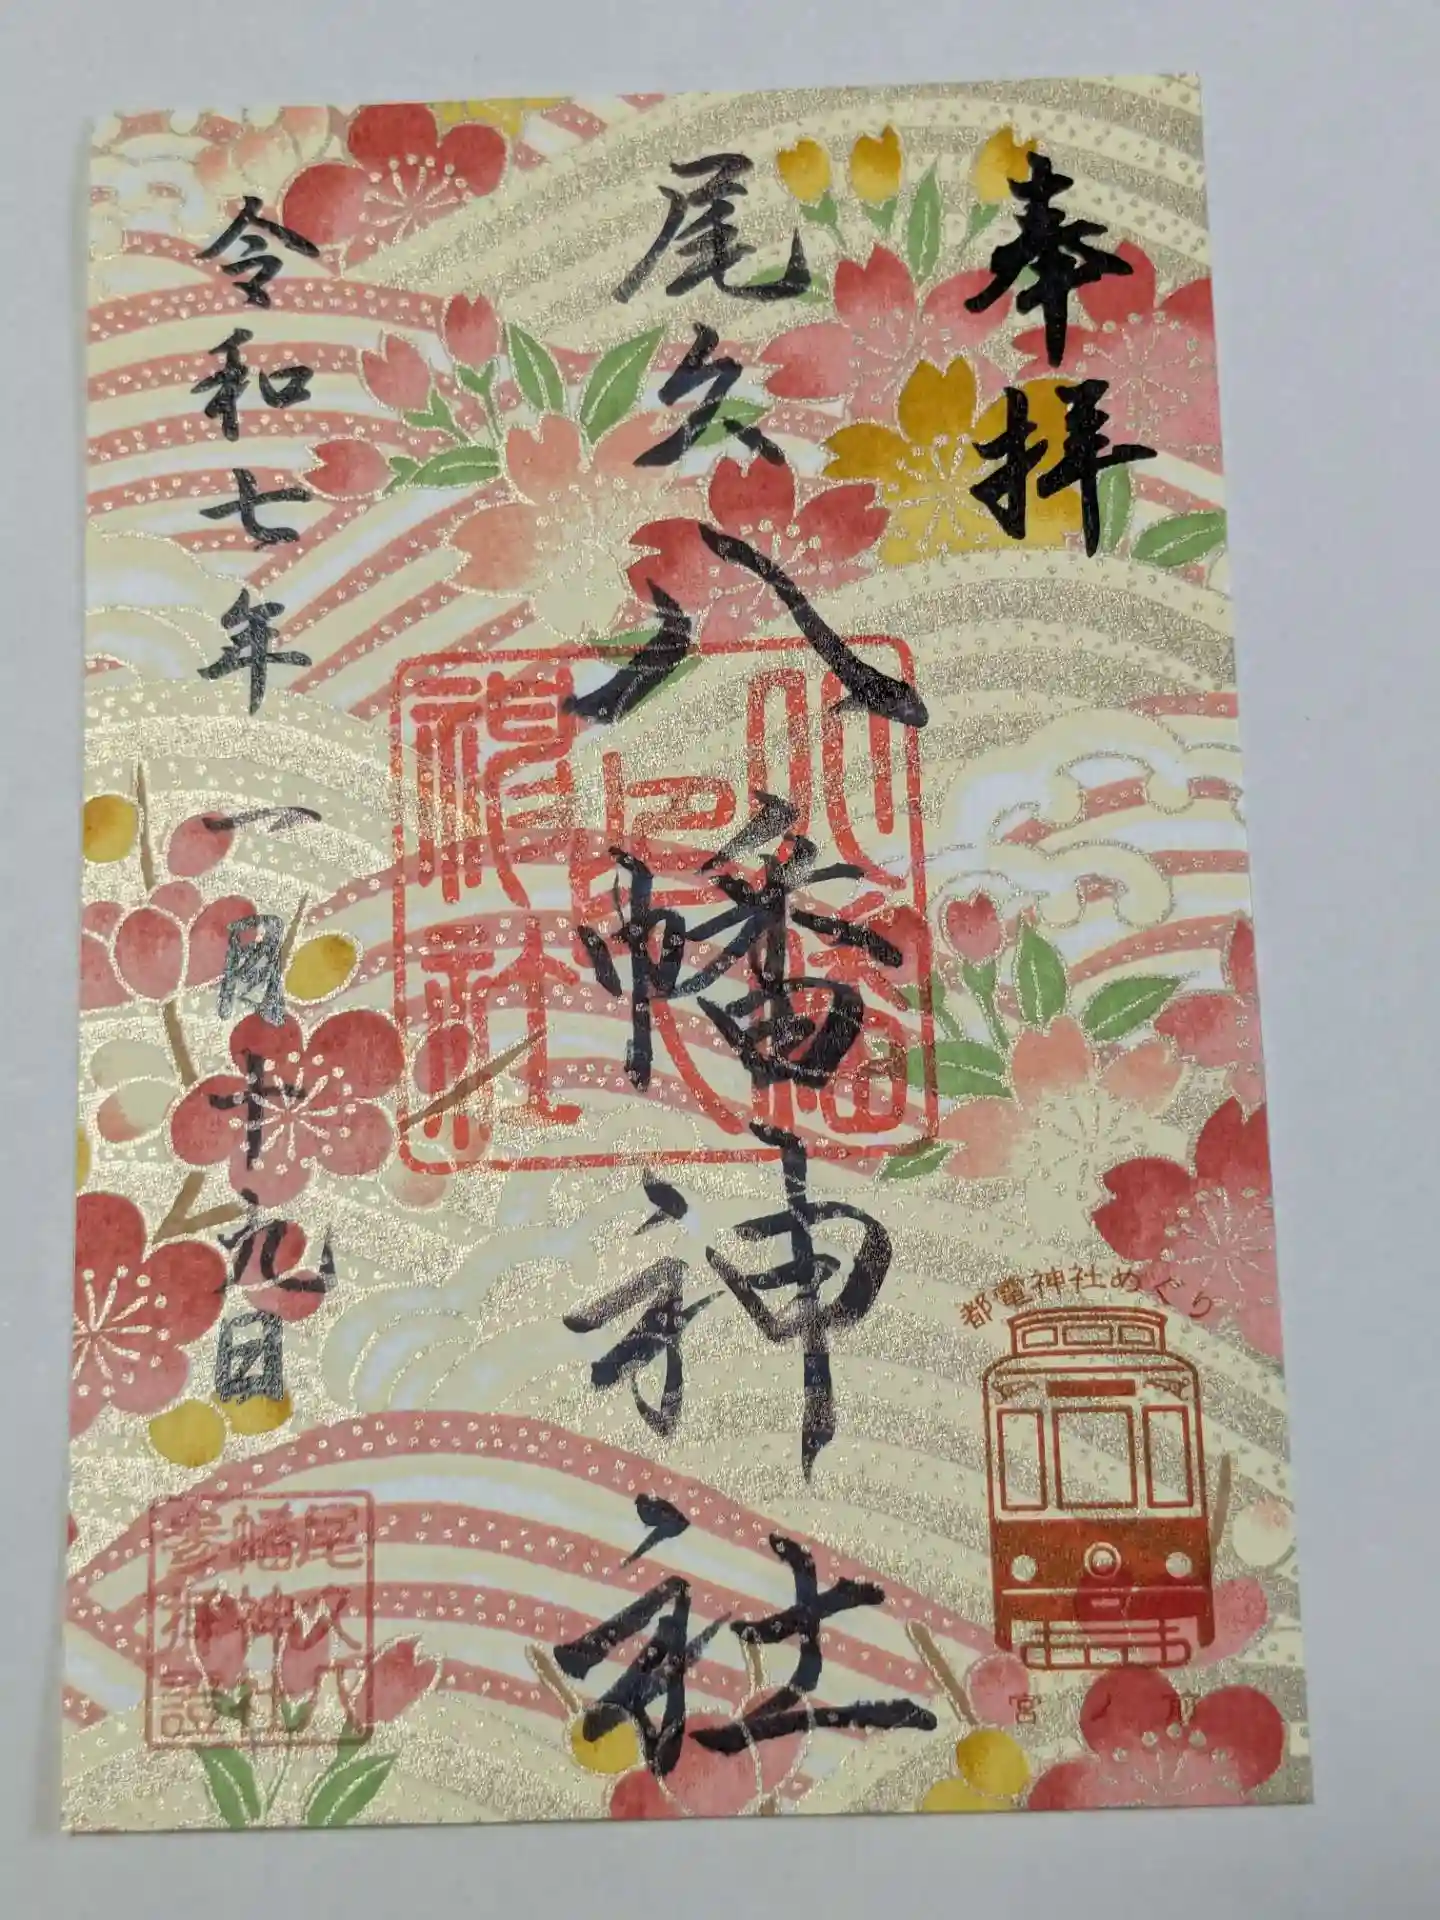 奉拝
都電神社めぐり
宮ノ前
尾久八幡神社
八幡神社
令和七年一月十九日
尾久八
幡神社
参拝證